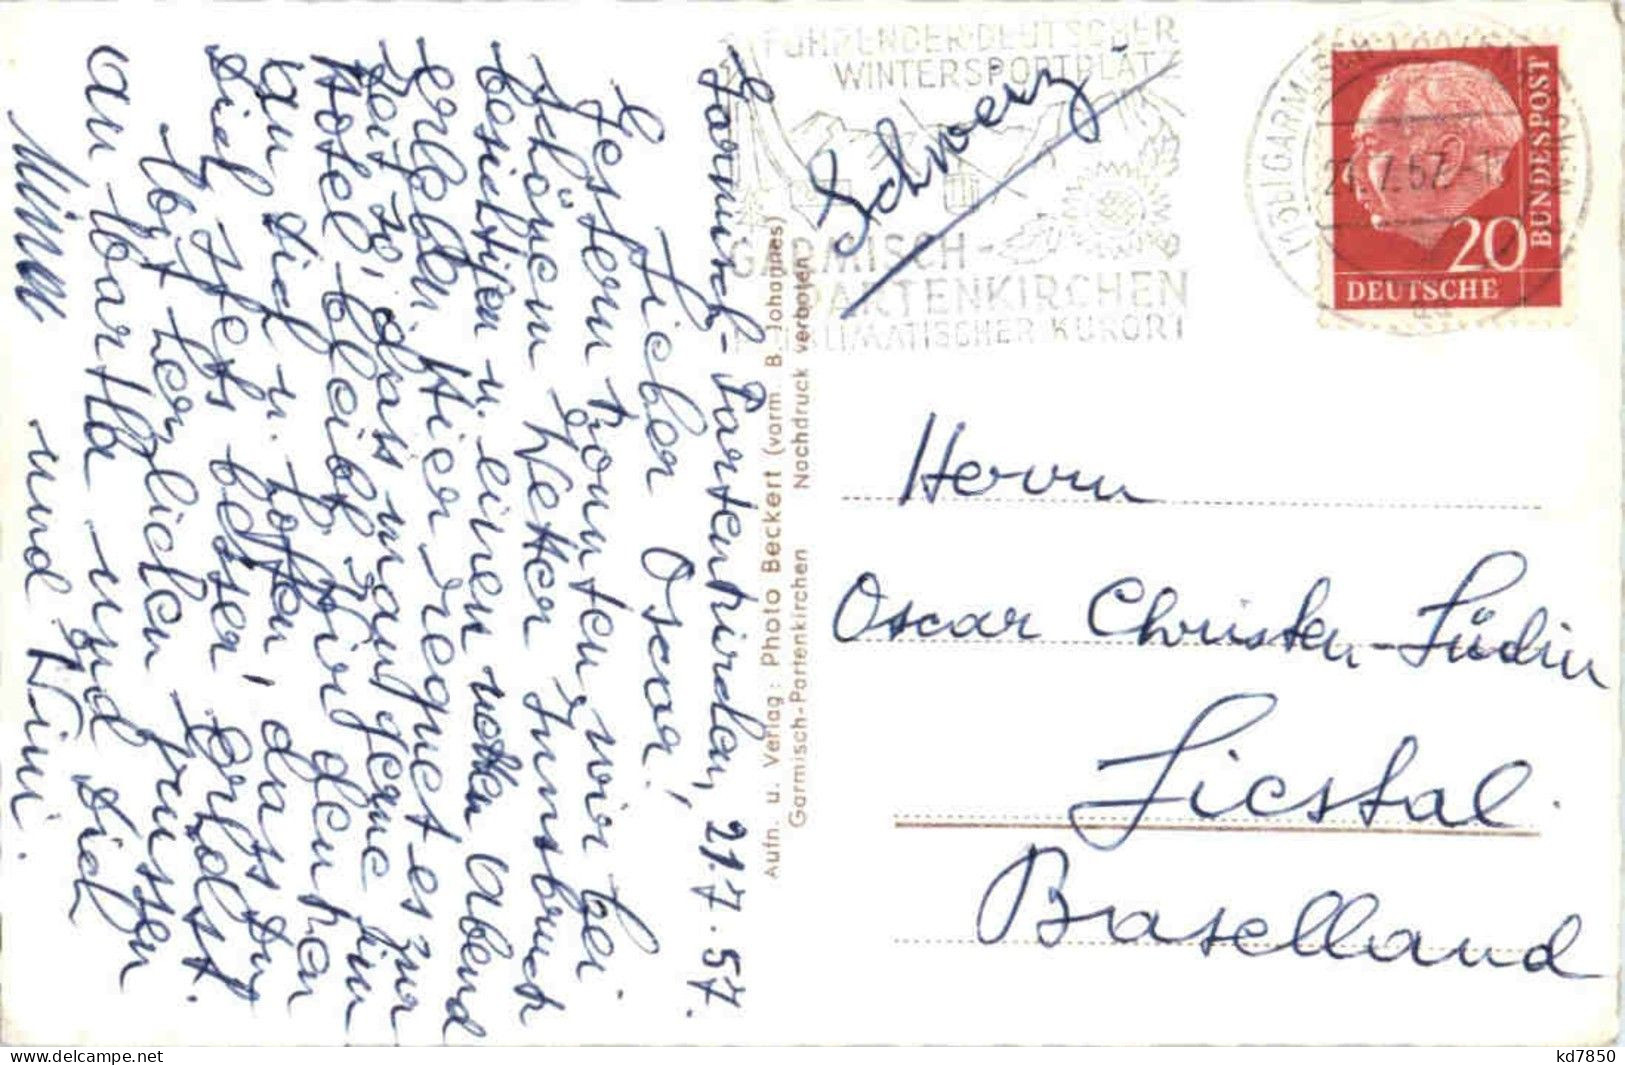 Garmisch-Partenkirchen, 21.7.57.
Lieber Oscar!
Gestern konnten wir bei
schönem Wetter Innsbruck
besichtigen u. einen netten Abend
erleben. Hier regnet es zur
Zeit so, dass man gerne im
Hotel bleibt. Wir denken
an Dich u. hoffen, dass Du
Dich stets besser erholst.
Mit herzlichen Grüssen
an Martha und Dich
und Mimi.
Aufn. u. Verlag: Photo Beckert (vorm. B. Johannes)
Garmisch-Partenkirchen Nachdruck verboten
FÜHRENDER DEUTSCHER
WINTERSPORTPLATZ
GARMISCH-
PARTENKIRCHEN
KLIMATISCHER KURORT
Schweiz
21.7.57
BUNDESPOST
20
DEUTSCHE
Herrn
Oscar Christen-Lüdin
Liestal.
Baselland
kd7850